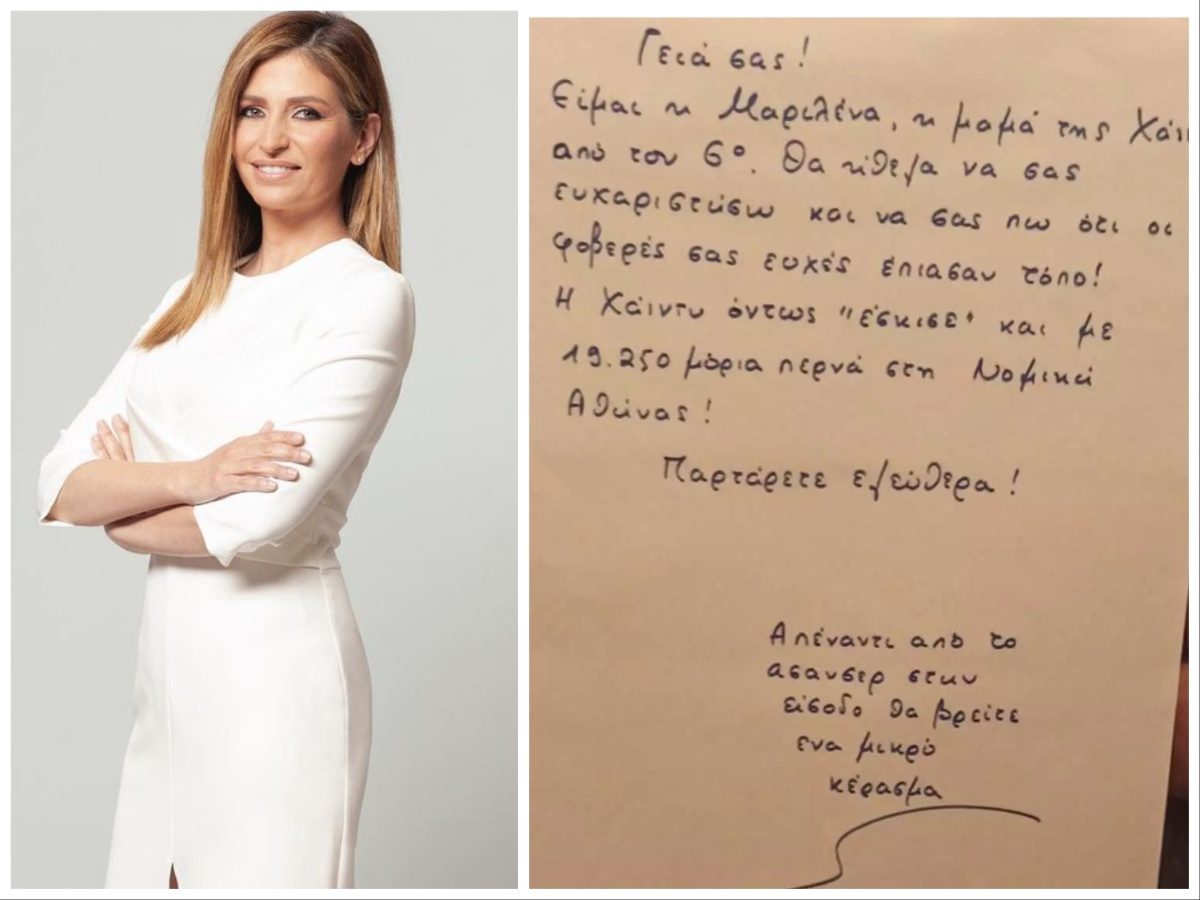 Γειά σας!
Είμαι η Μαριλένα, η μαμά της Χάιν
από τον 6º. Θα ήθελα να σας
ευχαριστήσω και να σας πω ότι οι
φοβερές σας ευχές έπιασαν τόπο!
Η Χάιντυ όντως "έσκισε" και με
19.250 μόρια περνά στη Νομική
Αθήνας!
Παρτάρετε ελεύθερα!
Απέναντι από το
ασανσερ στην
είσοδο θα βρείτε
ενα μικρό
κέρασμα